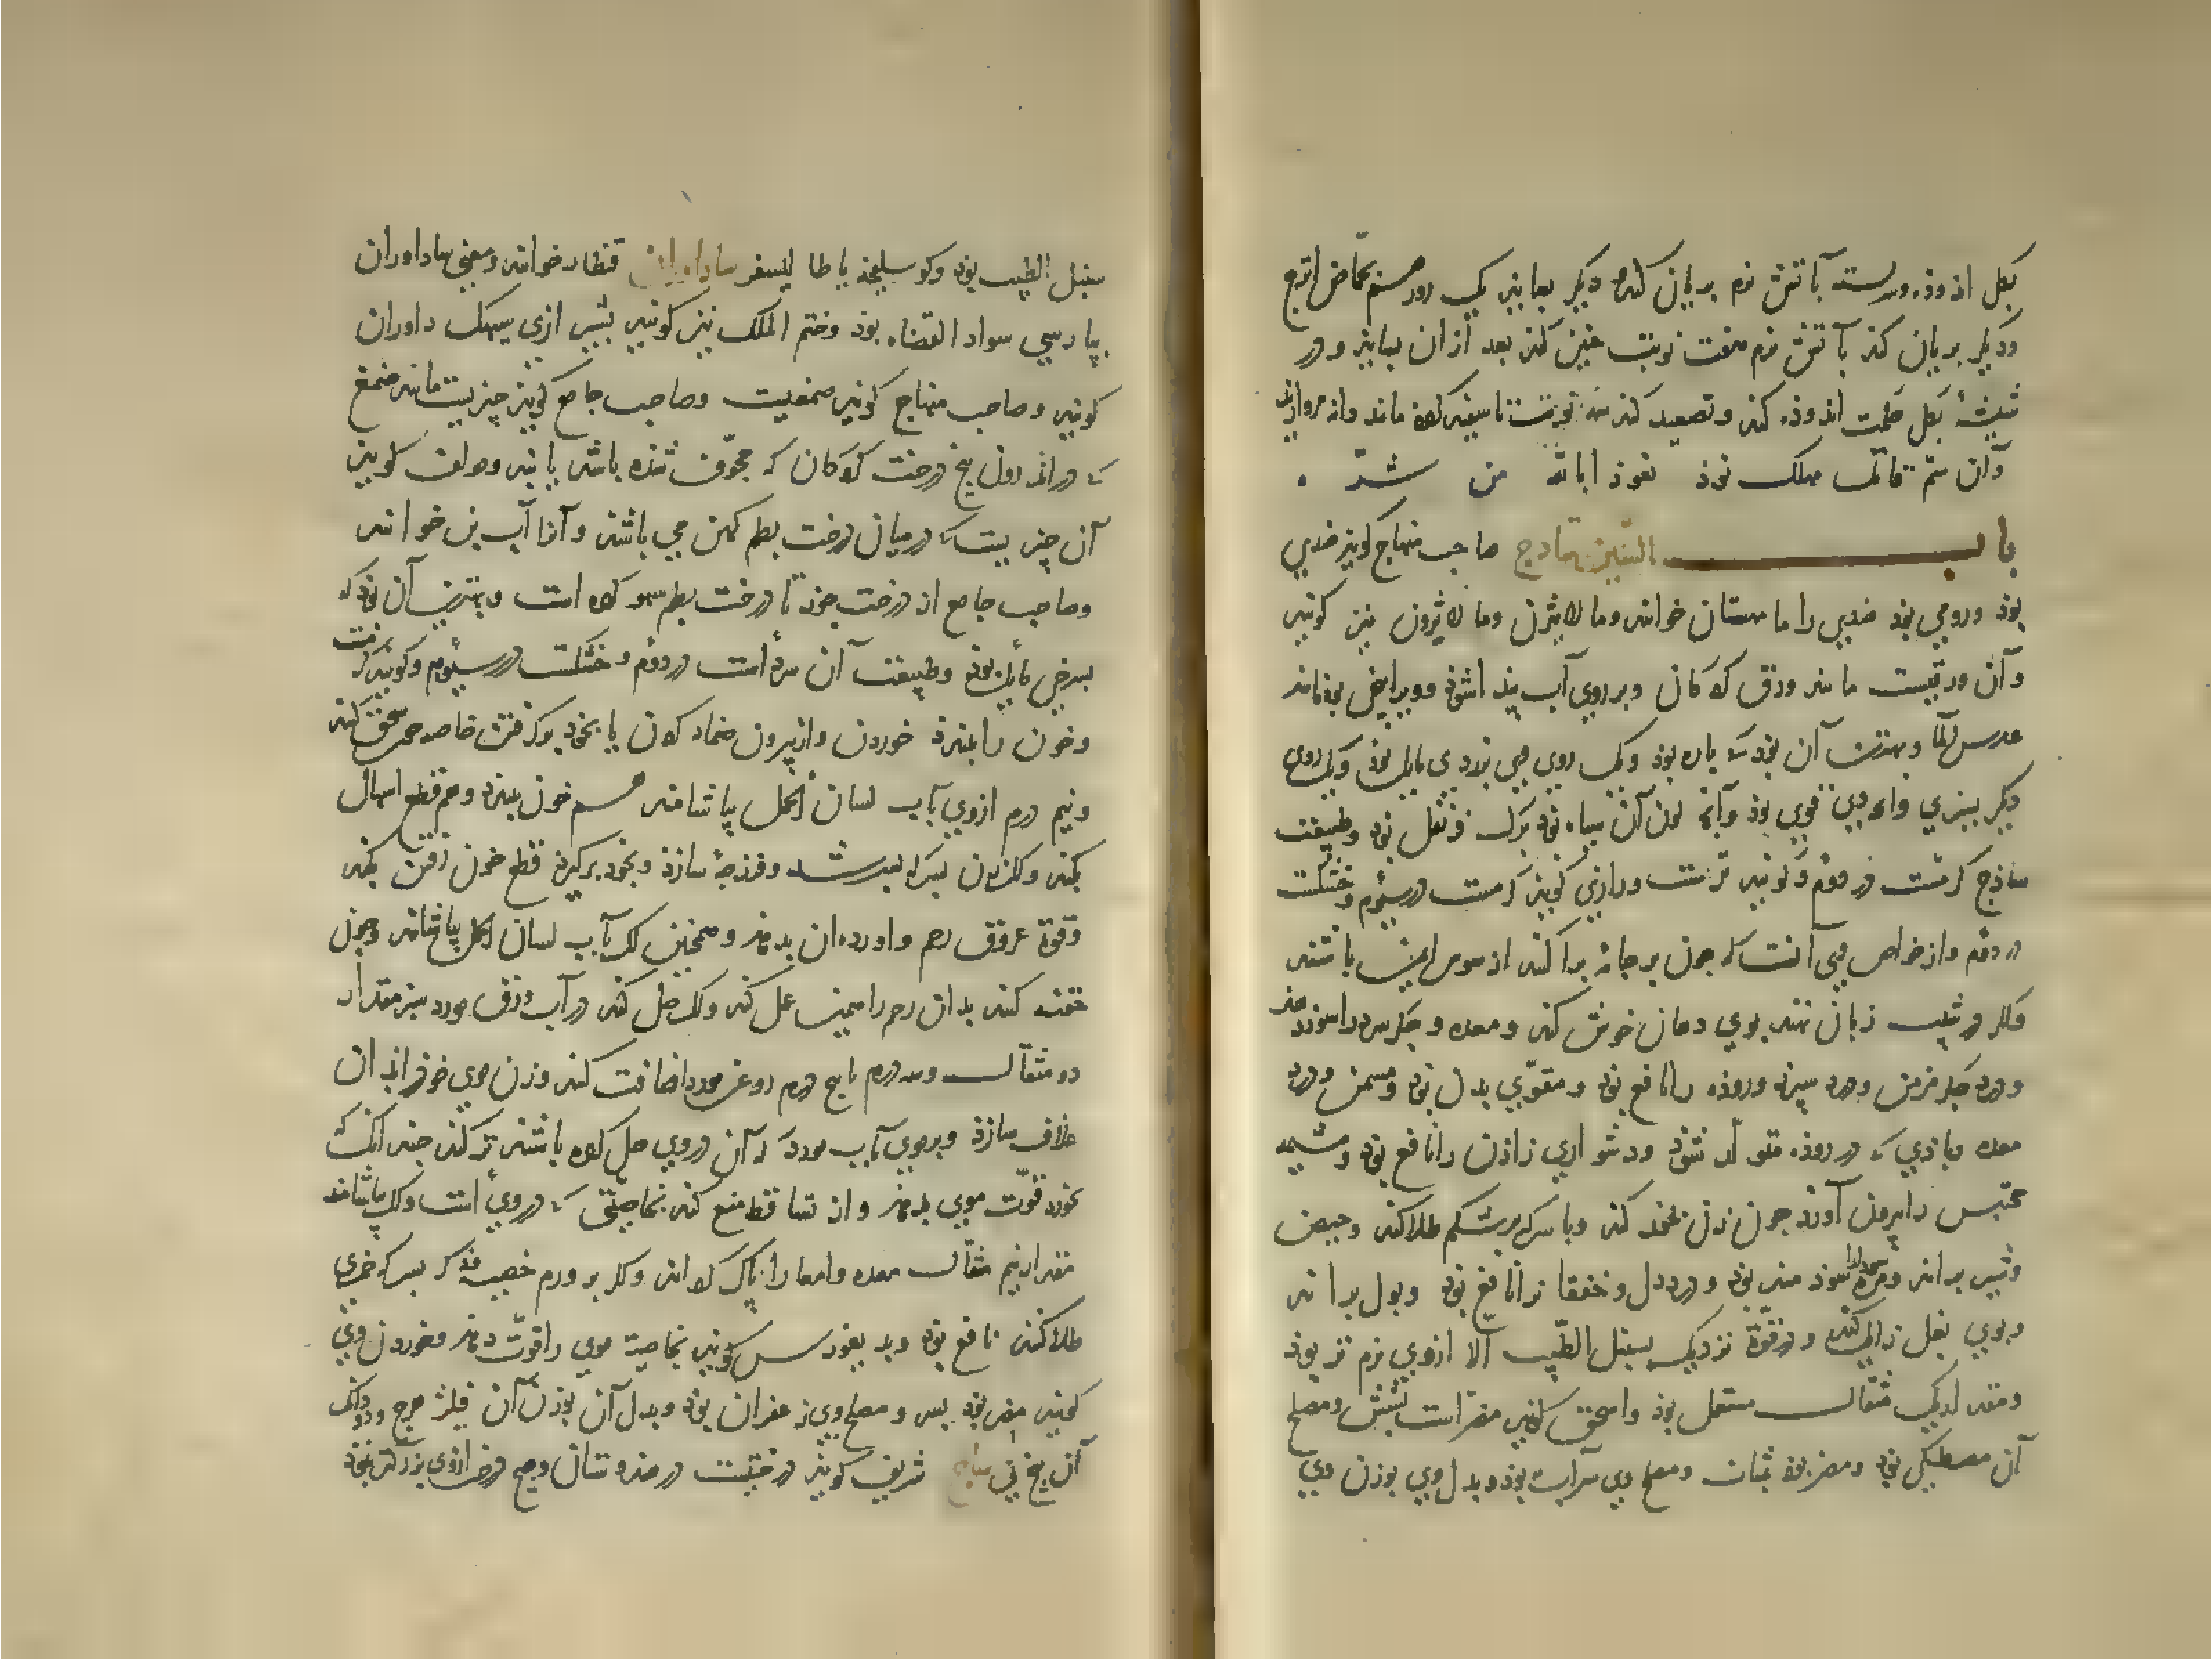 بکل اندوده وبر آتش نرم بریان کند دیکر بسایند یک روز حماض اترج
ودیکر بریان کند بآتش نرم هفت نوبت چنین کند بعد ازان بسایند ودر
شیشهٔ بکل حکمت اندوده کند وتصعید کند سه نوبت تا سفید
وآن سم قاتل مهلک بوذ نعوذ بالله من
باب السین ساذج صاحب منهاج کویذ هندی
بوذ ورومی بوذ هندی را خوانند ومالابثرن نیز کویند
وآن ورقیست مانند ورق کردکان وبر روی آب
عدس الما وبهترین آن بوذ که تازه بوذ ویک روی وی بزردی مایل بوذ ویک روی
دیکر بسبزی قوی بوذ وآنچه لون آن سیاه بوذ برک قرنفل بوذ وطبیعت
ساذج کرمست در دوم وکویند ترست ورازی کویذ کرمست در سیوم وخشکست
در دوم واز خواص وی آنست که چون بر جامه پراکنند از سوس ایمن باشند
واکر در شیب زبان نهند بوی دهان خوش کند ومعده وجکر سرد را سود دهد
ودرد جکر مزمن ودرد سپرز وروده را نافع بوذ ومقوی بدن بوذ ودرد
معده وبادی که در روده متولد شوذ ودشواری زادن را نافع بوذ ومشیمه
محتبس را بیرون آورد چون زن بخود کند وبا سرکه بر شکم طلا کند وحیض
وشیر براند بوذ ودرد دل وخفقان را نافع بوذ وبول براند
وبوی بغل زایل کند ودر قوة نزدیک بسنبل الطیب الا ازوی نرم تر بوذ
ومقدار یک مثقال مستعمل بوذ واسحق کویذ مضر است بشش ومصلح
آن مصطکی بوذ ومضر بوذ بمثانه ومصلح وی شراب بوذ وبدل وی بوزن وی
سنبل الطیب بوذ وکویند سلیخه یا طالیسفر ساداوران قنطار خوانند ومعنی ساداوران
بپارسی سواد القضاه بوذ وختم الملک نیز کویند بشیرازی سیهک داوران
کویند وصاحب منهاج کویذ صمغیست وصاحب جامع کویذ چیزیست مانند صمغ
که در اندرون بیخ درخت کردکان که مجوف شده باشد یابند ومولف کویذ
آن چیزیست که در میان درخت بطم کهن می باشد وآنرا آب بن خوانند
وصاحب جامع از درخت جوز تا درخت بطم سهو کرده است وبهترین آن بوذ که
بسرخی مایل بوذ وطبیعت آن سردست در دوم وخشکست در سیوم وکویند کرمست
وخون را ببندد خوردن واز بیرون ضماد کردن یا بخود برکرفتن خاصه چون سحق کنند
ونیم درم ازوی بآب لسان الحمل بیاشامند خون ببندد وهم قطع اسهال
بکند وفرزجه سازد وبخود برکیرد قطع خون رفتن بکند
وقوة عروق رحم بدهد وهمچنین اکر بآب لسان الحمل بیاشامند وچون
حقنه کنند بدان رحم را همین عمل کند واکر حل کنند در آب ورق مورد سبز مقدار
دو مثقال وسه درم تا پنج درم روغن مورد اضافت کند وزن موی خوذ اندران
غلاف سازد وبر موی بآب مورد که آن در وی حل کرده باشند تر کند چندانک
بخورد قوت موی بدهد واز تساقط منع کند بخاصیتی که در وی است واکر بیاشامند
مقدار نیم مثقال معده وامعا را پاک کرداند واکر بر ورم خصیه بسرکه خمری
طلا کنند نافع بوذ کویند بخاصیة موی را قوت دهد وخوردن وی
کویند مضر بوذ بسر ومصلح وی زعفران بوذ وبدل آن بوزن آن فیلزهرج ودودانک
آن بیخ نی ساج شریف کویذ درختیست در هندوستان وهیچ درخت ازوی بزرکتر نبوذ